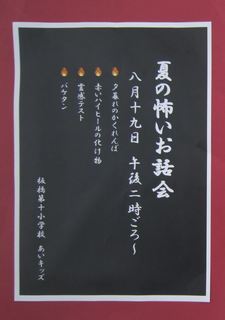 夏の怖いお話会
八月十九日 午後二時ごろ～
夕暮れのかくれんぼ
赤いハイヒールの化け物
霊感テスト
バケタン
板橋第十小学校 あいキッズ